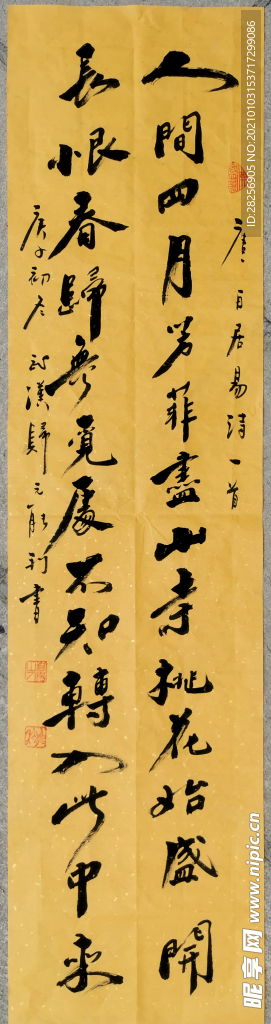 唐 白居易诗一首
人間四月芳菲盡山寺桃花始盛開
長恨春歸無覓處不知轉入此中來
庚子初冬 武漢歸元能利書
ID:28256905 NO:20210103153717299086
昵享网 www.nipic.cn